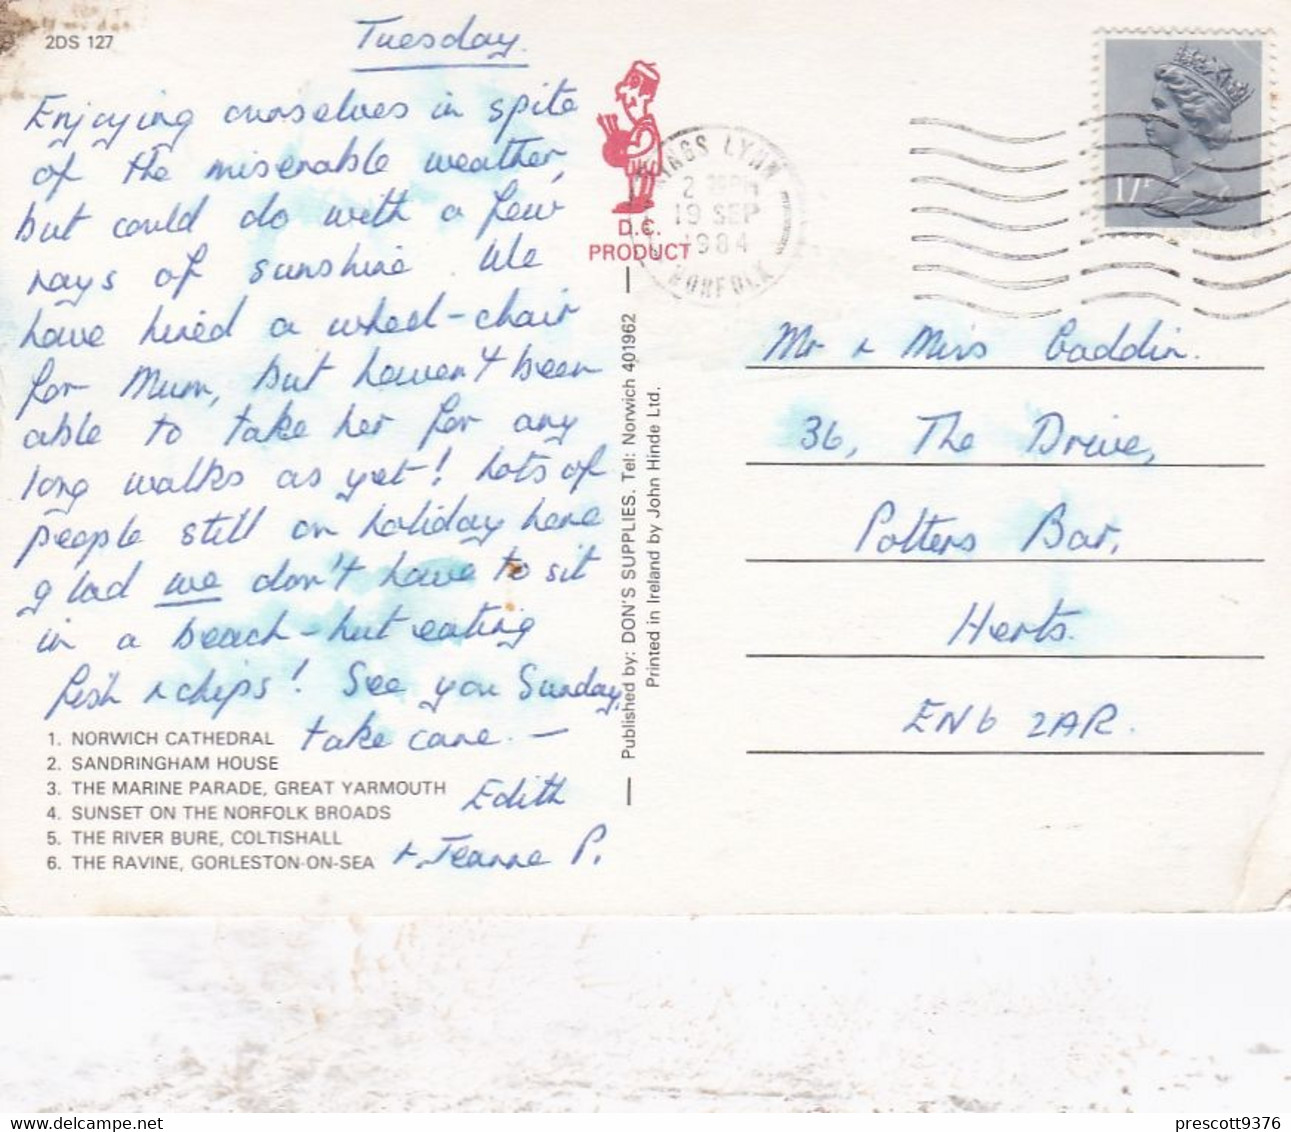 2DS 127
Tuesday.
Enjoying ourselves in spite
of the miserable weather,
but could do with a few
rays of sunshine. We
have hired a wheel-chair
for Mum, but haven't been
able to take her for any
long walks as yet! Lots of
people still on holiday here
glad we don't have to sit
in a beach-hut eating
fish & chips! See you Sunday,
take care. —
Edith
& Jeanne P.
1. NORWICH CATHEDRAL
2. SANDRINGHAM HOUSE
3. THE MARINE PARADE, GREAT YARMOUTH
4. SUNSET ON THE NORFOLK BROADS
5. THE RIVER BURE, COLTISHALL
6. THE RAVINE, GORLESTON-ON-SEA
D.C.
PRODUCT
Published by: DON'S SUPPLIES. Tel: Norwich 401962
Printed in Ireland by John Hinde Ltd.
KINGS LYNN
19 SEP
1984
NORFOLK
17P
Mr & Miss Gaddin.
36, The Drive,
Potters Bar,
Herts.
EN6 2AR.
prescott9376